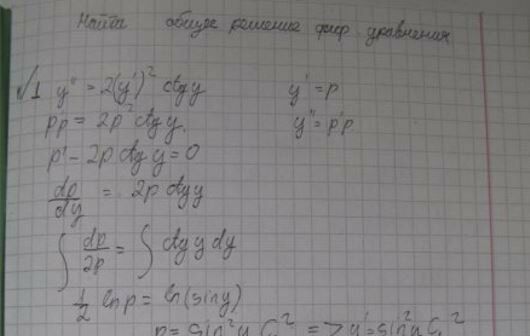 Найти общее решение диф. уравнения
√1 y'' = 2(y')² ctg y y' = p
pp = 2p² ctg y. y'' = p'p
p' - 2p ctg y = 0
dp/dy = 2p ctg y
∫ dp/2p = ∫ ctg y dy
1/2 ln p = ln(sin y)
p = sin² y C₁² => y' = sin² y C₁²